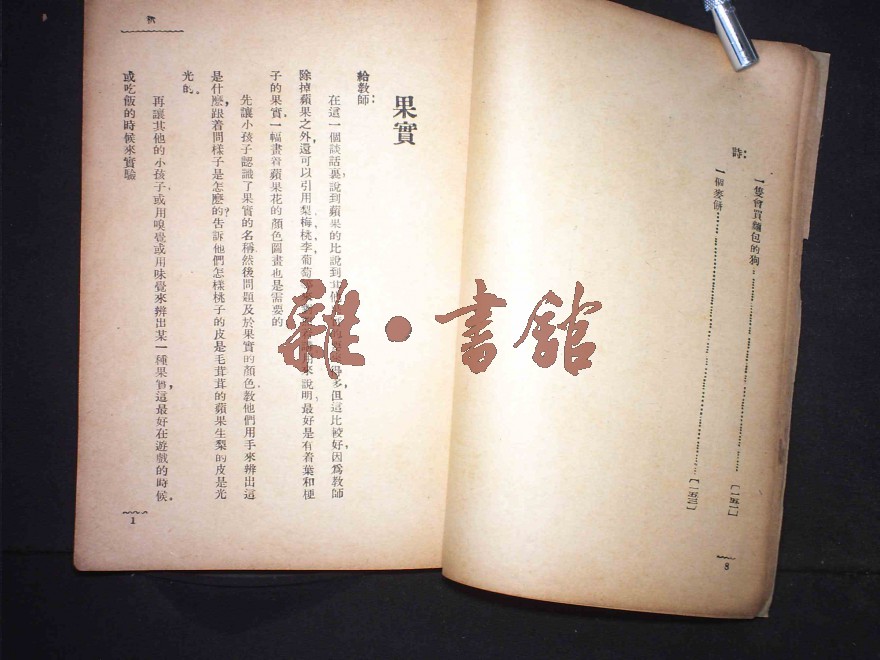 詩：
一隻會買麵包的狗………………………………〔一五一〕
一個麥餅………………………………〔一五三〕
8
秋
果實
給教師：
在這一個談話裏，說到蘋果的比說到其他
多，但這比較好，因爲教師
除掉蘋果之外，還可以引用梨，梅，桃，李，葡萄
來說明，最好是有着葉和梗
子的果實，一幅畫着蘋果花的顏色圖畫也是需要的
先讓小孩子認識了果實的名稱，然後問題及於果實的顏色，敎他們用手來辨出這
是什麼，跟着問樣子是怎麼的？告訴他們怎樣桃子的皮是毛茸茸的，蘋果生梨的皮是光
光的。
再讓其他的小孩子，或用嗅覺或用味覺來辨出某一種果實，這最好在遊戲的時候，
或吃飯的時候來實驗
1
雜·書館